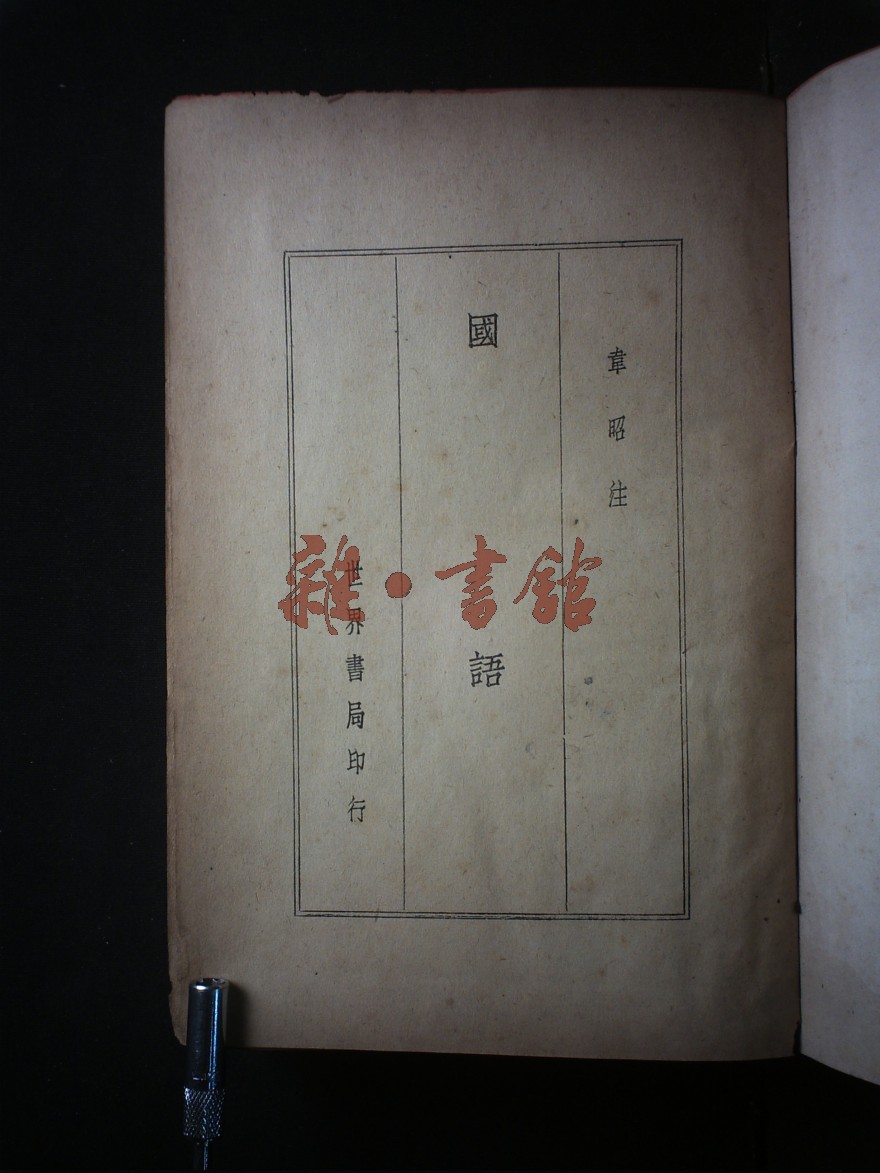 韋昭注
國語
世界書局印行
雜·書館